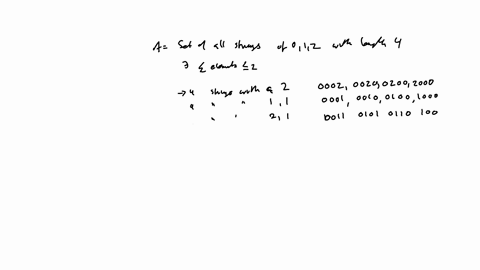 A = Set of all strings of 0,1,2 with length 4
∋ Σ elements ≤ 2
→ 4 strings with a 2 0002, 0020, 0200, 2000
4 " " 1, 1 0001, 0010, 0100, 1000
" " 2, 1 0011 0101 0110 100